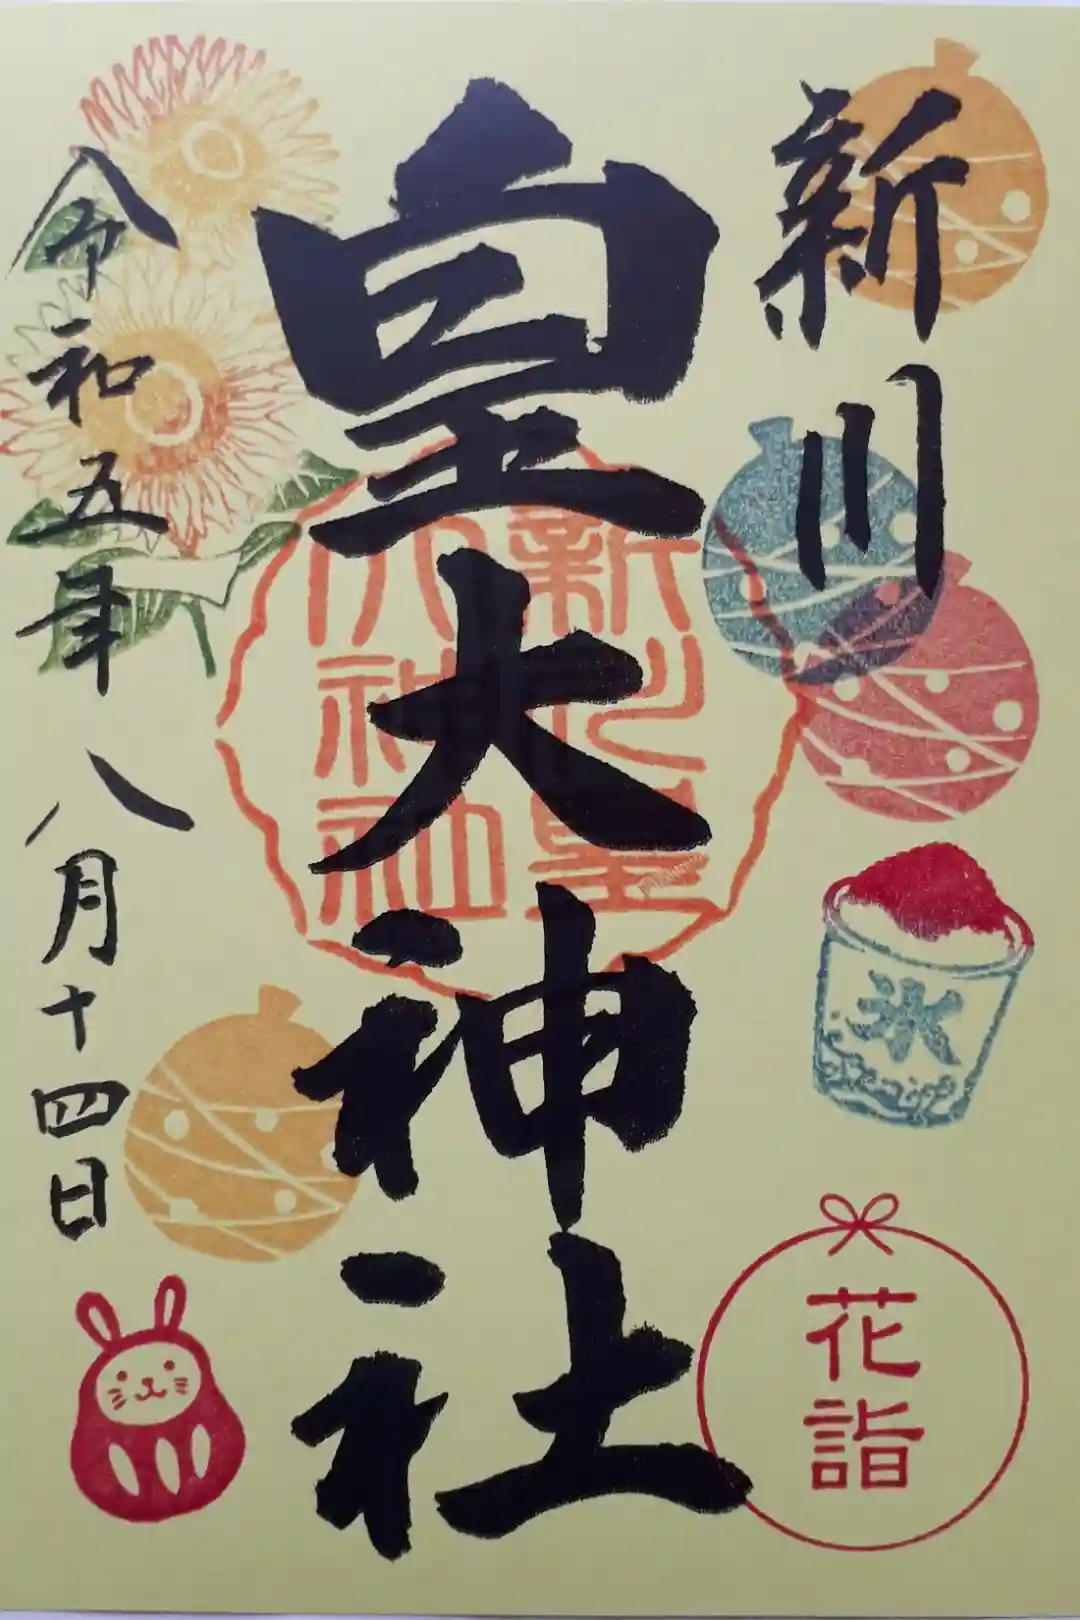 新川
皇大神社
令和五年八月十四日
新川皇
大神社
氷
花詣